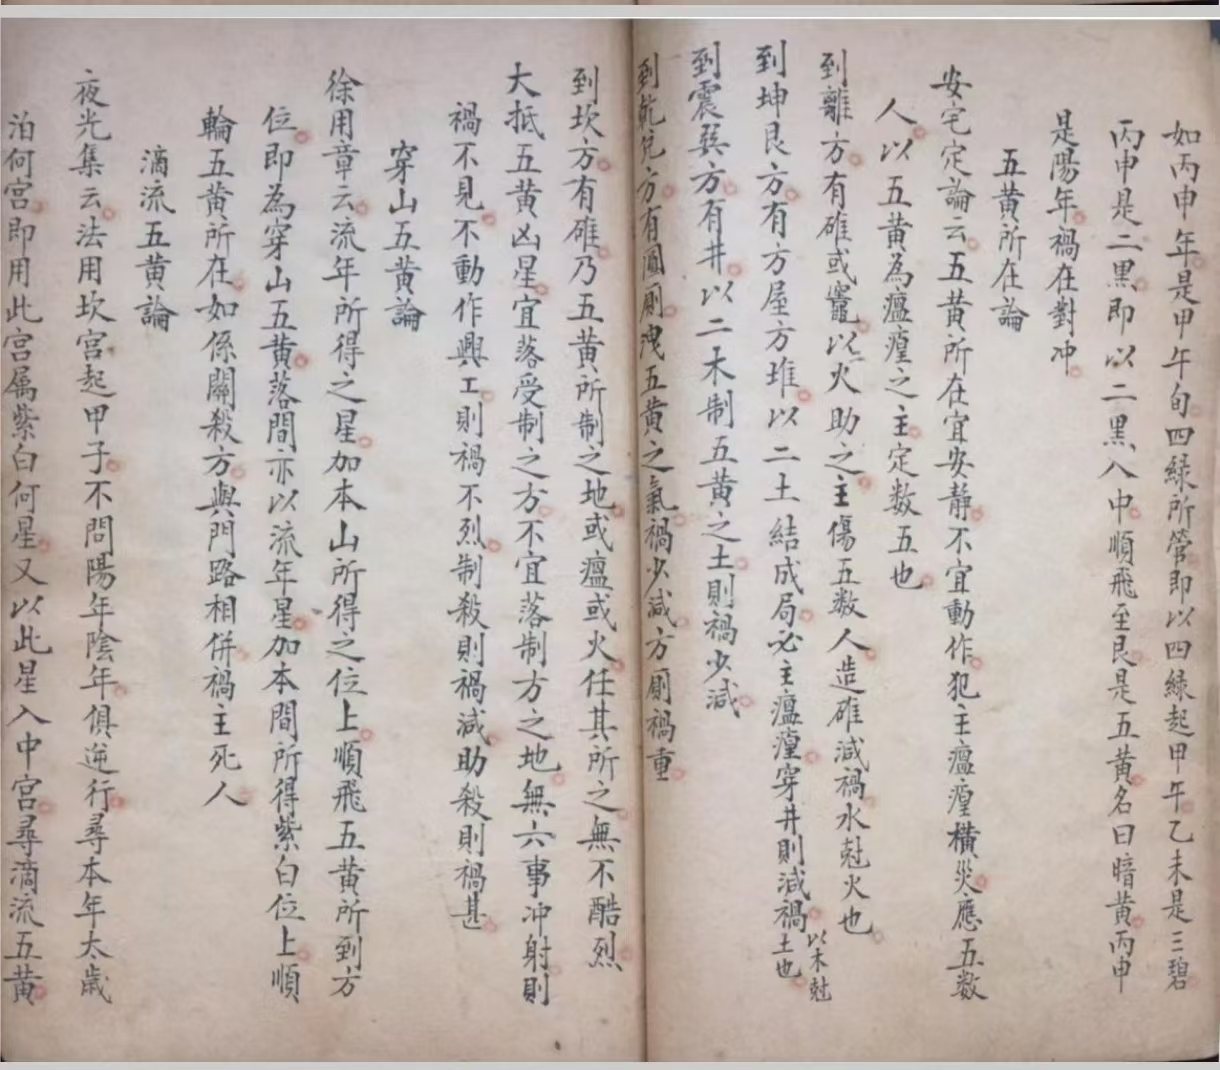 如丙申年是甲午旬四綠所管即以四綠起甲午乙未是三碧
丙申是二黑即以二黑入中順飛至艮是五黄名曰暗黄丙申
是陽年禍在對冲
五黄所在論
安宅定論云五黄所在宜安静不宜動作犯主瘟瘽橫災應五数
人以五黄為瘟瘽之主定数五也
到離方有碓或竈以火助之主傷五数人造碓減禍水尅火也
到坤艮方有方屋方堆以二土結成局必主瘟瘽穿井則減禍以木尅土也
到震巽方有井以二木制五黄之土則禍少減
到乾兌方有圓厠洩五黄之氣禍少減方厠禍重
到坎方有碓乃五黄所制之地或瘟或火任其所之無不酷烈
大抵五黄凶星宜落受制之方不宜落制方之地無六事冲射則
禍不見不動作興工則禍不烈制殺則禍減助殺則禍甚
穿山五黄論
徐用章云流年所得之星加本山所得之位上順飛五黄所到方
位即為穿山五黄落間亦以流年星加本間所得紫白位上順
輪五黄所在如係關殺方與門路相併禍主死人
滴流五黄論
夜光集云法用坎宮起甲子不問陽年陰年俱逆行尋本年太歲
泊何宮即用此宮属紫白何星又以此星入中宮尋滴流五黄